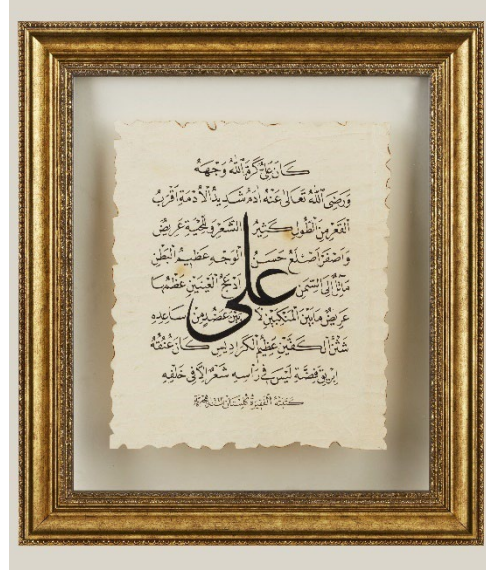 كَانَ عَلِيٌّ كَرَّمَ اللّٰهُ وَجْهَهُ
وَرَضِيَ اللّٰهُ تَعَالٰى عَنْهُ اٰدَمُ شَدِيدُ الْاُدْمَةِ اَقْرَبُ
الْقَصْرِ مِنَ الطُّولِ كَثِيرُ الشَّعْرِ وَاللِّحْيَةِ عَرِيضٌ
وَاَصْفَرُ اَصْلَعُ حَسَنُ الْوَجْهِ عَظِيمُ الْبَطْنِ
مَائِلٌ اِلَى السِّمَنِ اَدْعَجُ الْعَيْنَيْنِ عَظِيمُهَا
على
عَرِيضُ مَابَيْنَ الْمَنْكِبَيْنِ لَا يَبِينُ عَضُدُهُ مِنْ سَاعِدِهِ
شَثْنُ الْكَفَّيْنِ عَظِيمُ الْكَرَادِيسِ كَانَ عُنُقُهُ
اِبْرِيقُ فِضَّةٍ لَيْسَ فِى رَاْسِهِ شَعْرٌ اِلَّا فِى خَلْفِهِ
كتبته الفقيرة